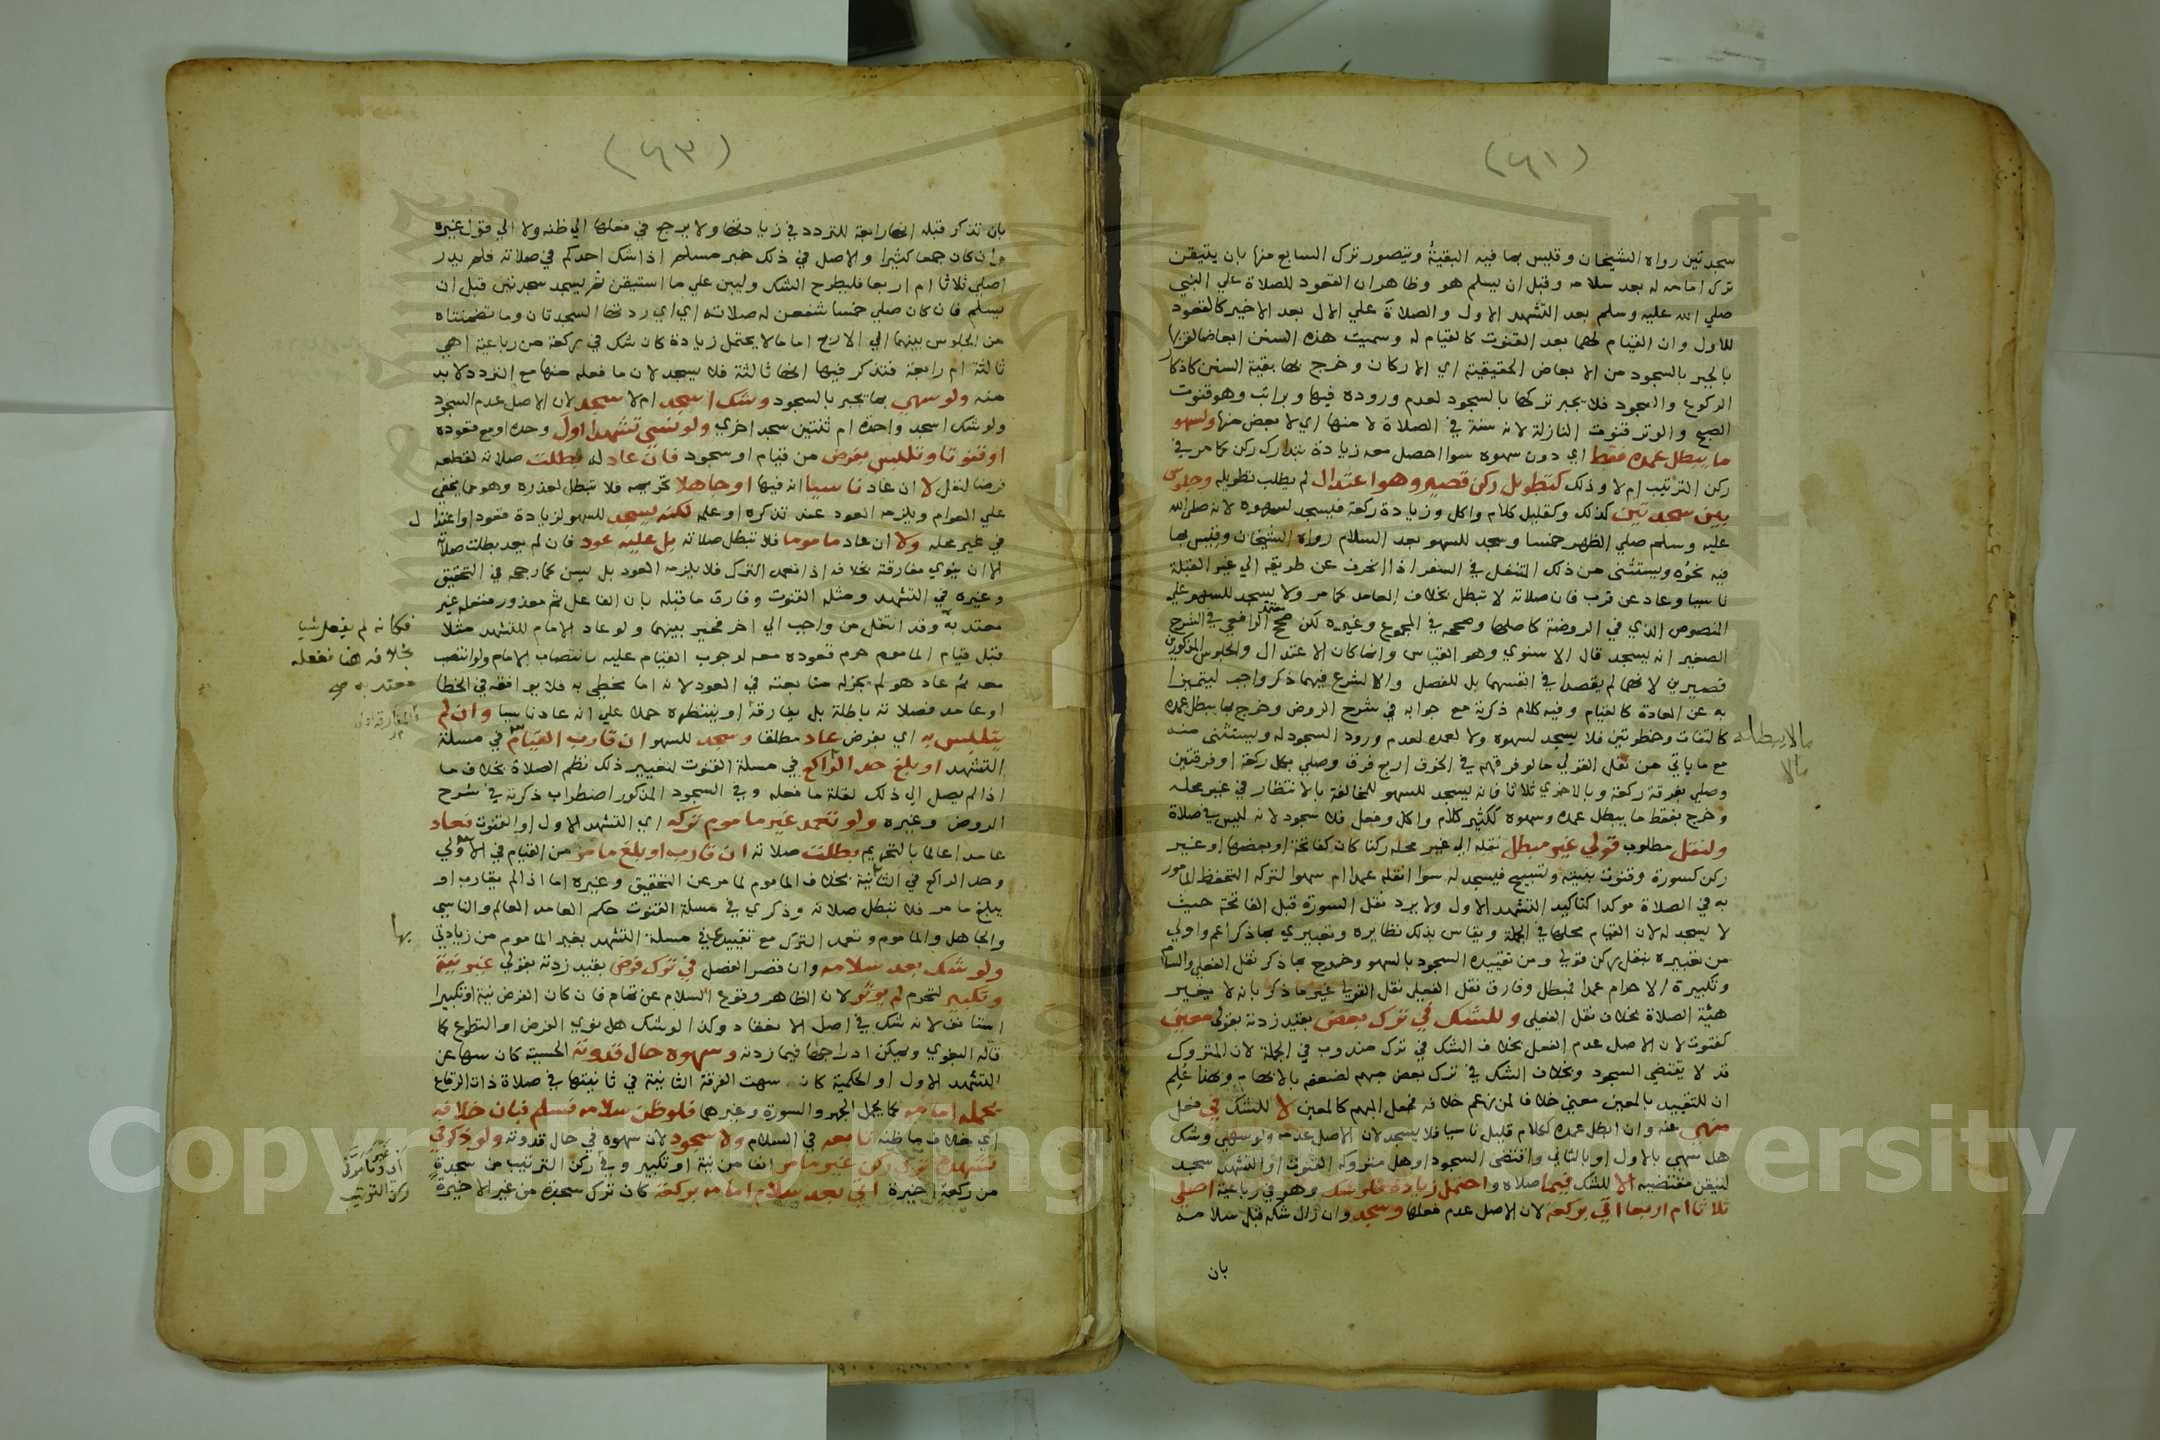 (٦١)
سجدتين رواه الشيخان وقليس بما فيه البقية ويتصور ترك السابع منها بان يتيقن
ترك امامه له بعد سلامه وقبل ان يسلم هو وظاهر ان القعود للصلاة علي النبي
صلي الله عليه وسلم بعد التشهد الاول والصلاة علي الال بعد الاخير كالقعود
للاول وان القيام لهما بعد القنوت كالقيام له وسميت هذه السنن ابعاضا لقربها
بالجبر بالسجود من الابعاض الحقيقية اي الاركان وخرج بها بقية السنن كاذكار
الركوع والسجود فلا يجبر تركها بالسجود لعدم وروده فيها وبراتب وهو قنوت
الصبح والوتر قنوت النازلة لانه سنة في الصلاة لا منها اي لا بعض منها ولسهو
ما يبطل عمده فقط اي دون سهوه سوا احصل معه زيادة بتدارك ركن كما مر في
ركن الترتيب ام لا وذلك كتطويل ركن قصير وهو اعتدال لم يطلب تطويله وجلوس
بين سجدتين كذلك وكقليل كلام واكل وزيادة ركعة فيسجد لسهوه لانه صلي الله
عليه وسلم صلي الظهر خمسا وسجد للسهو بعد السلام رواه الشيخان وقليس بما
فيه نحوه ويستثني من ذلك المتنفل في السفر اذا انحرف عن طريقه الي غير القبلة
ناسيا وعاد عن قرب فان صلاته لا تبطل بخلاف العامد كما مر ولا يسجد للسهو علي
المنصوص الذي في الروضة كاصلها وصححه في المجموع وغيره لكن صحح الرافعي في الشرح
الصغير انه يسجد قال الاسنوي وهو القياس وانما كان الاعتدال والجلوس المذكورين
قصيرين لانهما لم يقصدا في انفسهما بل للفصل والا لشرع فيهما ذكر واجب ليتميزا
به عن العادة كالقيام وفيه كلام ذكرته مع جوابه في شرح الروض وخرج بما يبطل عمده
مالا يبطله
مالا
كالتفات وخطوتين فلا يسجد لسهوه ولا لعمده لعدم ورود السجود له ويستثنى منه
مع ما ياتي من نقل القولي ما لو فرقهم في الخوف اربع فرق وصلي بكل ركعة او فرقتين
وصلي بفرقة ركعة وبالاخري ثلاثا فانه يسجد للسهو للمخالفة بالانتظار في غير محله
وخرج بفقط ما يبطل عمده وسهوه ككثير كلام واكل وفعل فلا سجود لانه ليس في صلاة
ولنقل مطلوب قولي غير مبطل نقله الي غير محله ركنا كان كفاتحة او بعضها او غير
ركن كسورة وقنوت بنيته وتسبيح فيسجد له سوا انقله عمدا ام سهوا لتركه التحفظ المامور
به في الصلاة موكدا كتاكيد التشهد الاول ولا يرد نقل السورة قبل الفاتحة حيث
لا يسجد له لان القيام محلها في الجملة ويقاس بذلك نظايره وتعبيري بما ذكر اعم واولي
من تعبيره بنقل ركن قولي ومن تقييده السجود بالسهو وخرج بما ذكر نقل الفعلي والسلام
وتكبيرة الاحرام عمدا فمبطل وفارق نقل الفعلي نقل القولي غير ما ذكر بانه لا يغير
هيئة الصلاة بخلاف نقل الفعلي وللشك في ترك بعض بقيد زدته بقولي معين
كقنوت لان الاصل عدم الفعل بخلاف الشك في ترك مندوب في الجملة لان المتروك
قد لا يقتضي السجود وبخلاف الشك في ترك بعض مبهم لضعفه بالابهام وبهذا علم
ان للتقييد بالمعين معني خلافا لمن زعم خلافه فجعل المبهم كالمعين لا للشك في فعل
منهي عنه وان ابطل عمده ككلام قليل ناسيا فلا يسجد لان الاصل عدمه ولو سهي وشك
هل سهي بالاول او بالثاني واقتضي السجود او هل متروكه القنوت او التشهد سجد
لتيقن مقتضيه الا للشك فيما صلاه واحتمل زيادة فلو شك وهو في رباعية اصلي
ثلاثا ام اربعا اتي بركعة لان الاصل عدم فعلها وسجد وان زال شكه قبل سلامه
بان
(٦٣)
بان تذكر قبله انها رابعة للتردد في زيادتها ولا يرجع في فعلها الي ظنه ولا الي قول غيره
وان كان جمعا كثيرا والاصل في ذلك خبر مسلم اذا شك احدكم في صلاته فلم يدر
اصلي ثلاثا ام اربعا فليطرح الشك وليبن علي ما استيقن ثم يسجد سجدتين قبل ان
يسلم فان كان صلي خمسا شفعن له صلاته اي اي ردتها السجدتان وما تضمنتاه
من الجلوس بينهما الي الاربع اما ما لا يحتمل زيادة كان شك في ركعة من رباعية اهي
ثالثة ام رابعة فتذكر فيها انها ثالثة فلا يسجد لان ما فعله منها مع التردد لا بد
منه ولو سهي بما يجبر بالسجود وشك اسجد ام لا سجد لان الاصل عدم السجود
ولو شك اسجد واحدة ام ثنتين سجد اخري ولو نسي تشهدا اول وحده او مع قعوده
او قنوتا وتلبس بفرض من قيام او سجود فان عاد له بطلت صلاته لقطعه
فرضا لنفل لا ان عاد ناسيا انه فيها او جاهلا تحريمه فلا تبطل لعذره وهو مما يخفي
علي العوام ويلزمه العود عند تذكره او علمه لكنه يسجد للسهو لزيادة قعود او اعتدا ل
في غير محله ولا ان عاد ماموما فلا تبطل صلاته بل عليه عود فان لم يعد بطلت صلاته
الا ان ينوي مفارقة بخلافه اذا تعمد الترك فلا يلزمه العود بل يسن كما رجحه في التحقيق
وغيره في التشهد ومثله القنوت وفارق ما قبله بان الفاعل ثم معذور ففعله غير
معتد به وقد انتقل من واجب الي اخر فخير بينهما ولو عاد الامام للتشهد مثلا
فكانه لم يفعل شيا
بخلافه هنا ففعله
معتد به صح
قبل قيام الماموم حرم قعوده معه لوجوب القيام عليه بانتصاب الامام ولو انتصب
معه ثم عاد هو لم يجز له متابعته في العود لانه اما مخطي به فلا يوافقه في الخطا
او عامد فصلاته باطلة بل يفارقه او ينتظره حملا علي انه عاد ناسيا وان لم
يتلبس به اي بفرض عاد مطلقا وسجد للسهو ان قارب القيام في مسلة
التشهد او بلغ حد الراكع في مسلة القنوت لتغيير ذلك نظم الصلاة بخلاف ما
اذا لم يصل الي ذلك لقلة ما فعله وفي السجود المذكور اضطراب ذكرته في شرح
الروض وغيره ولو تعمد غير ماموم تركه اي التشهد الاول او القنوت فعاد
عامدا عالما بالتحريم بطلت صلاته ان قارب او بلغ ما مر من القيام في الاولي
وحد الراكع في الثانية بخلاف الماموم لما مر عن التحقيق وغيره اما اذا لم يقارب او
يبلغ ما مر فلا تبطل صلاته وذكري في مسلة القنوت حكم العامد العالم والناسي
والجاهل والماموم وتعمد الترك مع تقييدي في مسلة التشهد بغير الماموم من زيادتي
بها
ولو شك بعد سلامه وان قصر الفصل في ترك فرض بقيد زدته بقولي غير نية
وتكبير لتحرم لم يوثر لان الظاهر وقوع السلام عن تمام فان كان الفرض نية او تكبيرا
استانف لانه شك في اصل الانعقاد وكذا لو شك هل نوي الفرض او التطوع كما
قاله البغوي ويمكن ادراجها فيما زدته وسهوه حال قدوته الحسية كان سها عن
التشهد الاول او الحكمية كان سهت الفرقة الثانية في ثانيتها في صلاة ذات الرقاع
يحمله امامه كما يحمل الجهر والسورة وغيرها فلو ظن سلامه فسلم فبان خلافه
اي خلاف ما ظنه تابعه في السلام ولا سجود لان سهوه في حال قدوته ولو ذكر في
تشهده ترك ركن غير ما مر انفا من نية او تكبير وفي ركن الترتيب من سجدة
من ركعة اخيرة اتي بعد سلام امامه بركعة كان ترك سجدة من غير الاخيرة
ركن الترتيب